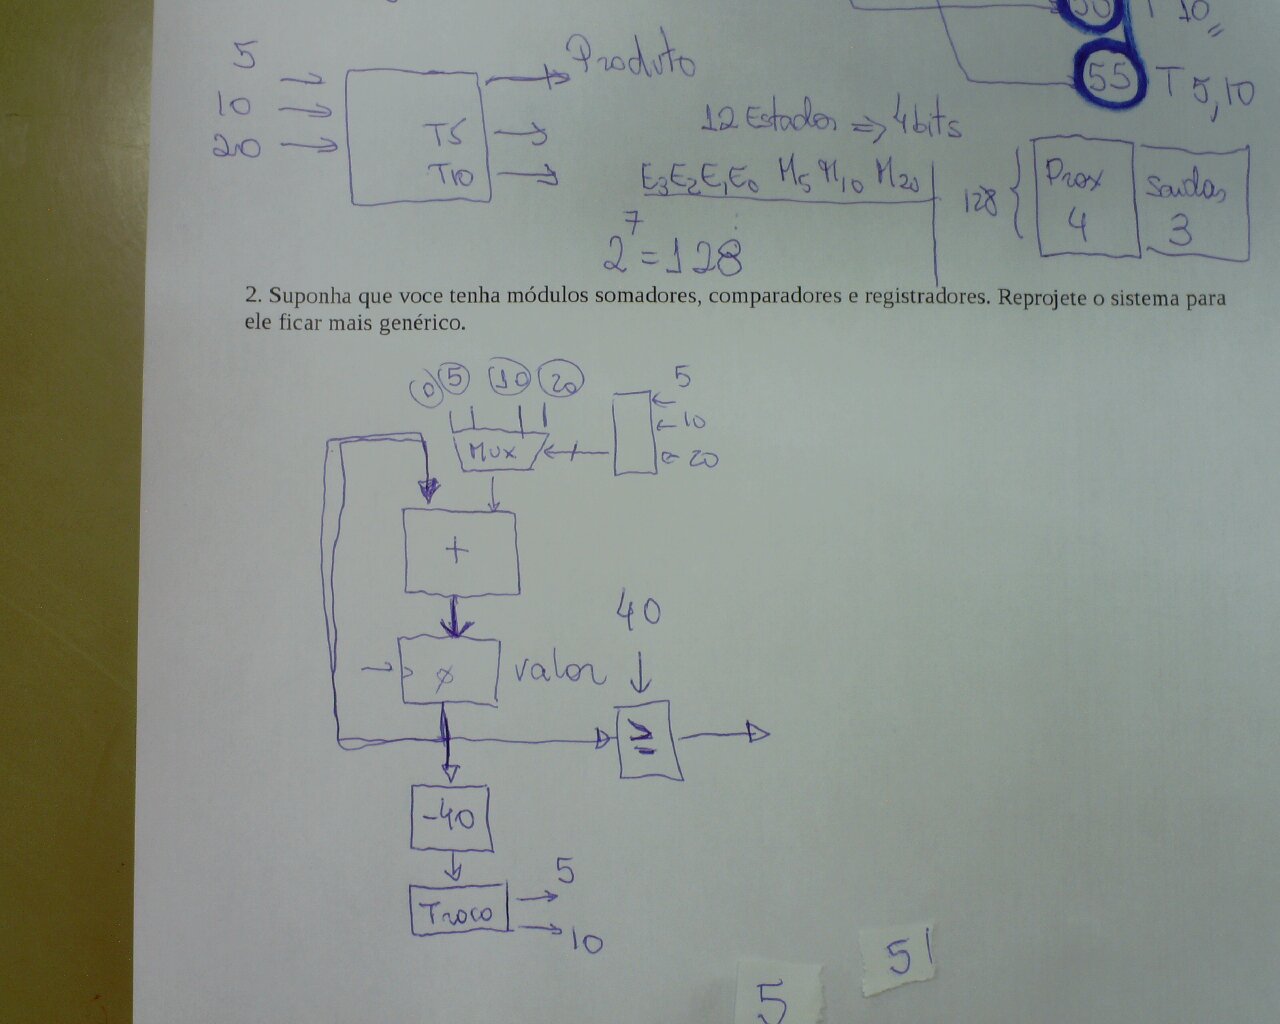 50 T 10,,
55 T 5,10
5
10
20
T5
T10
Produto
12 Estados => 4 bits
E3E2E1E0 M5 M10 M20
2^7=128
128 { Prox 4
Saidas 3
2. Suponha que voce tenha módulos somadores, comparadores e registradores. Reprojete o sistema para
ele ficar mais genérico.
0 5 10 20
MUX
5
10
20
+
40
valor
≥
-40
Troco
5
10
51
5